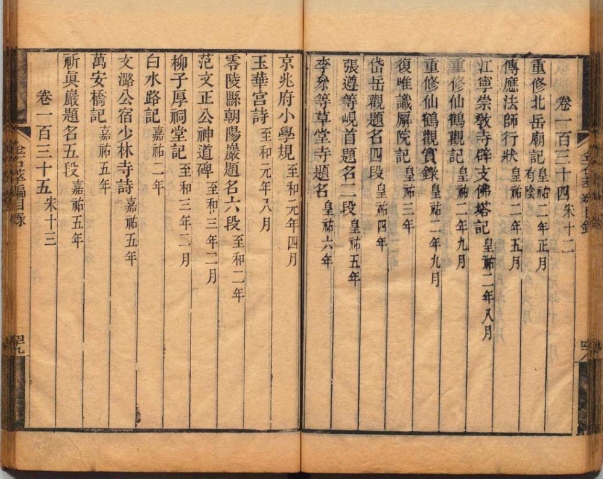 卷一百三十四 宋十二
重修北岳廟記 皇祐二年正月 有陰
傳應法師行狀 皇祐二年
江寧崇教寺辟支佛塔記 皇祐二年八月
重修仙鶴觀記 皇祐二年九月
重修仙鶴觀實錄 皇祐二年九月
復唯識廨院記 皇祐三年
岱岳觀題名四段 皇祐四年
張遵等峴首題名二段 皇祐五年
李參等草堂寺題名 皇祐六年
京兆府小學規 至和元年四月
玉華宮詩 至和元年八月
零陵縣朝陽巖題名六段 至和二年
范文正公神道碑 至和三年二月
柳子厚祠堂記 至和三年二月
白水路記 嘉祐二年
文潞公宿少林寺詩 嘉祐五年
萬安橋記 嘉祐五年
祈真巖題名五段 嘉祐五年
卷一百三十五 宋十三
金石萃編目錄